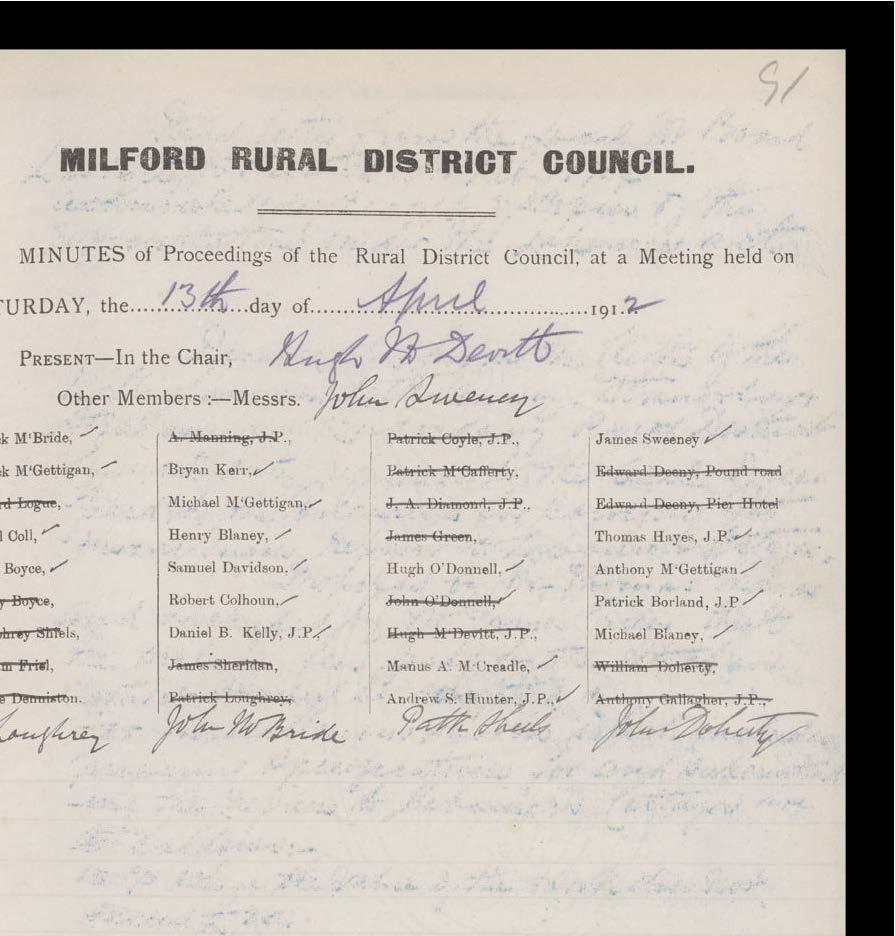 91
MILFORD RURAL DISTRICT COUNCIL.
MINUTES of Proceedings of the Rural District Council, at a Meeting held on
TURDAY, the 13th day of April 1912
PRESENT—In the Chair, Hugh McDevitt
Other Members :—Messrs. John Sweeney
k M'Bride, A. Manning, J.P., Patrick Coyle, J.P., James Sweeney
k M'Gettigan, Bryan Kerr, Patrick M'Cafferty, Edward Deeny, Pound road
rd Logue, Michael M'Gettigan, J. A. Diamond, J.P., Edward Deeny, Pier Hotel
l Coll, Henry Blaney, James Green, Thomas Hayes, J.P.
Boyce, Samuel Davidson, Hugh O'Donnell, Anthony M'Gettigan
y Boyce, Robert Colhoun, John O'Donnell, Patrick Borland, J.P
phrey Shiels, Daniel B. Kelly, J.P. Hugh M'Devitt, J.P., Michael Blaney,
m Friel, James Sheridan, Manus A. M'Creadle, William Doherty,
e Denniston. Patrick Loughrey, Andrew S. Hunter, J.P., Anthony Gallagher, J.P.,
Loughrey John McBride Patk Sheils John Doherty